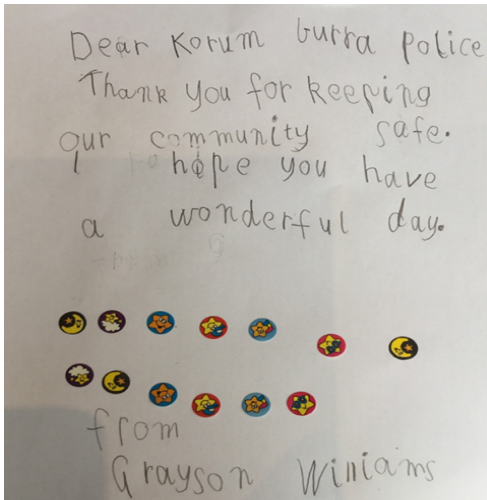 Dear Korum burra police
Thank you for keeping
our community safe.
I hope you have
a wonderful day.
from
Grayson Williams